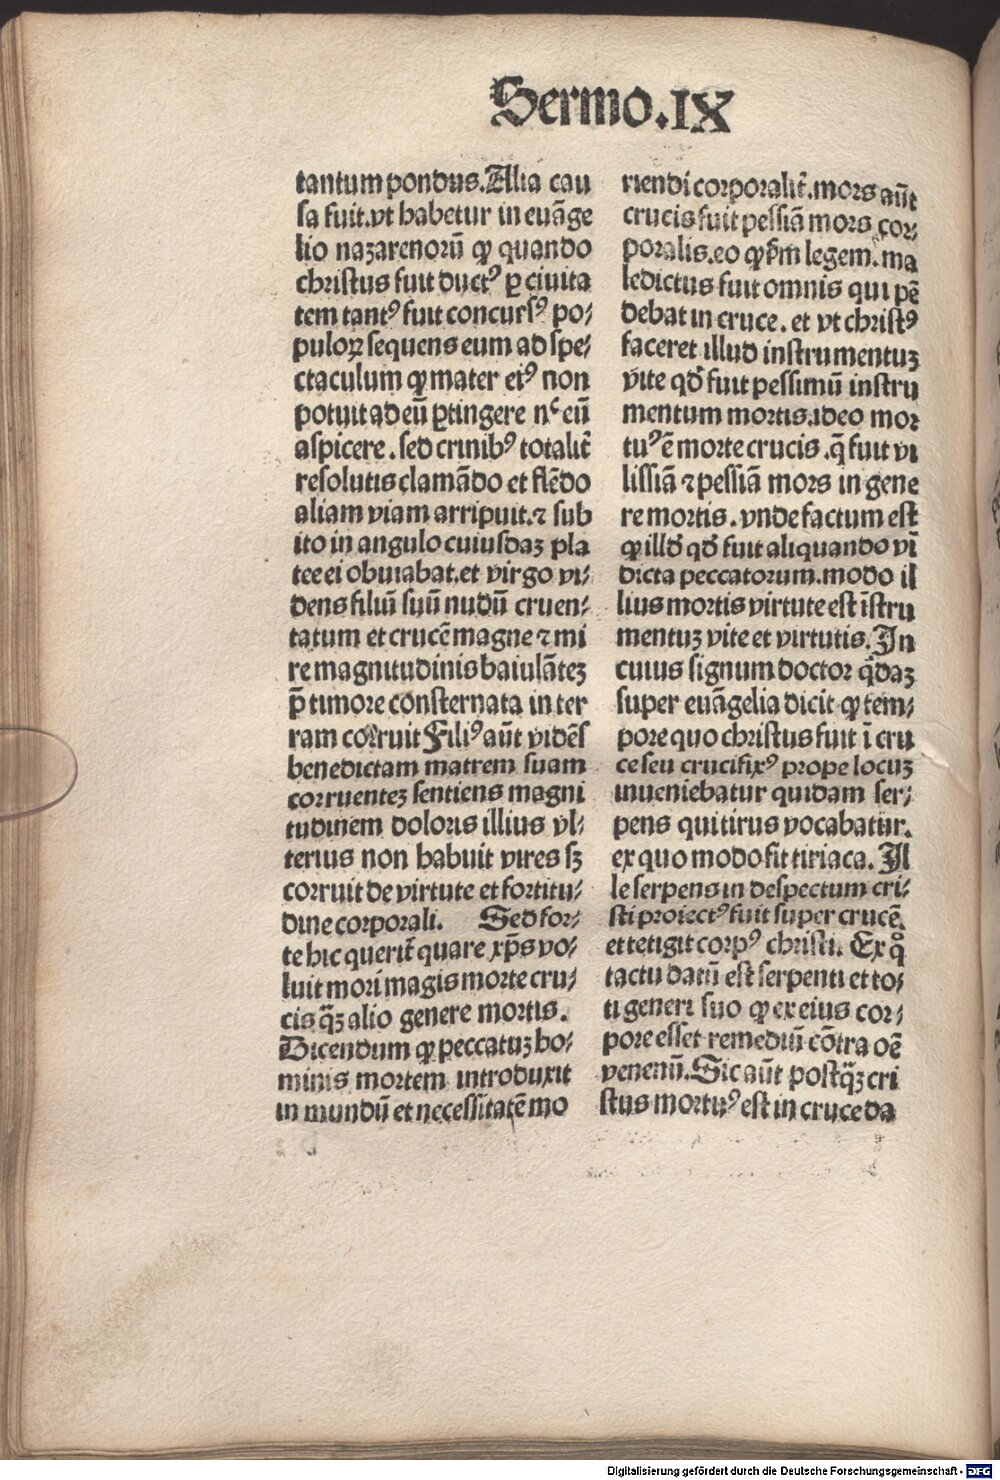 Sermo.IX
tantum pondus.Alia cau
sa fuit.vt habetur in euāge
lio nazarenorū ꝙ quando
christus fuit ductꝰ ꝑ ciuita
tem tantꝰ fuit concursꝰ po⸗
puloꝝ sequens eum ad spe⸗
ctaculum ꝙ mater eiꝰ non
potuit ad eū ꝑtingere nᶜ eū
aspicere.sed crinibꝰ totalit̄
resolutis clamādo et flēdo
aliam viam arripuit.⁊ sub
ito in angulo cuiusdaꝫ pla
tee ei obuiabat.et virgo vi⸗
dens filiū suū nudū cruen⸗
tatum et crucē magne ⁊ mi
re magnitudinis baiulāteꝫ
p̄ timore consternata in ter
ram corruit Filiꝰ aūt vidēs
benedictam matrem suam
corruenteꝫ sentiens magni
tudinem doloris illius vl⸗
terius non habuit vires sꝫ
corruit de virtute et fortitu⸗
dine corporali. Sed for⸗
te hic querit̄ quare xp̄s vo⸗
luit mori magis morte cru⸗
cis q̄ꝫ alio genere mortis.
Dicendum ꝙ peccatuꝫ ho⸗
minis mortem introduxit
in mundū et necessitatē mo
riendi corporalit̄.mors aūt
crucis fuit pessiā mors cor⸗
poralis.eo ꝙ ẜm legem.ma
ledictus fuit omnis qui pē
debat in cruce.et vt christꝰ
faceret illud instrumentuꝫ
vite qd̄ fuit pessimū instru
mentum mortis.ideo mor
tuꝰ ē morte crucis.q̄ fuit vi
lissiā ⁊ pessiā mors in gene
re mortis.vnde factum est
ꝙ illd̄ qd̄ fuit aliquando vī
dicta peccatorum.modo il
lius mortis virtute est īstru
mentuꝫ vite et virtutis.In
cuius signum doctor q̄daꝫ
super euāgelia dicit ꝙ tem⸗
pore quo christus fuit ī cru
ce seu crucifixꝰ prope locuꝫ
inueniebatur quidam ser⸗
pens qui tirus vocabatur.
ex quo modo fit tiriaca.Il
le serpens in despectum cri⸗
sti proiectꝰ fuit super crucē.
et tetigit corpꝰ christi. Ex qͦ
tactu datū est serpenti et to⸗
ti generi suo ꝙ ex eius cor⸗
pore esset remediū cōtra oē
venenū.Sic aūt postq̄ꝫ cri
stus mortuꝰ est in cruce da
Digitalisierung gefördert durch die Deutsche Forschungsgemeinschaft - DFG